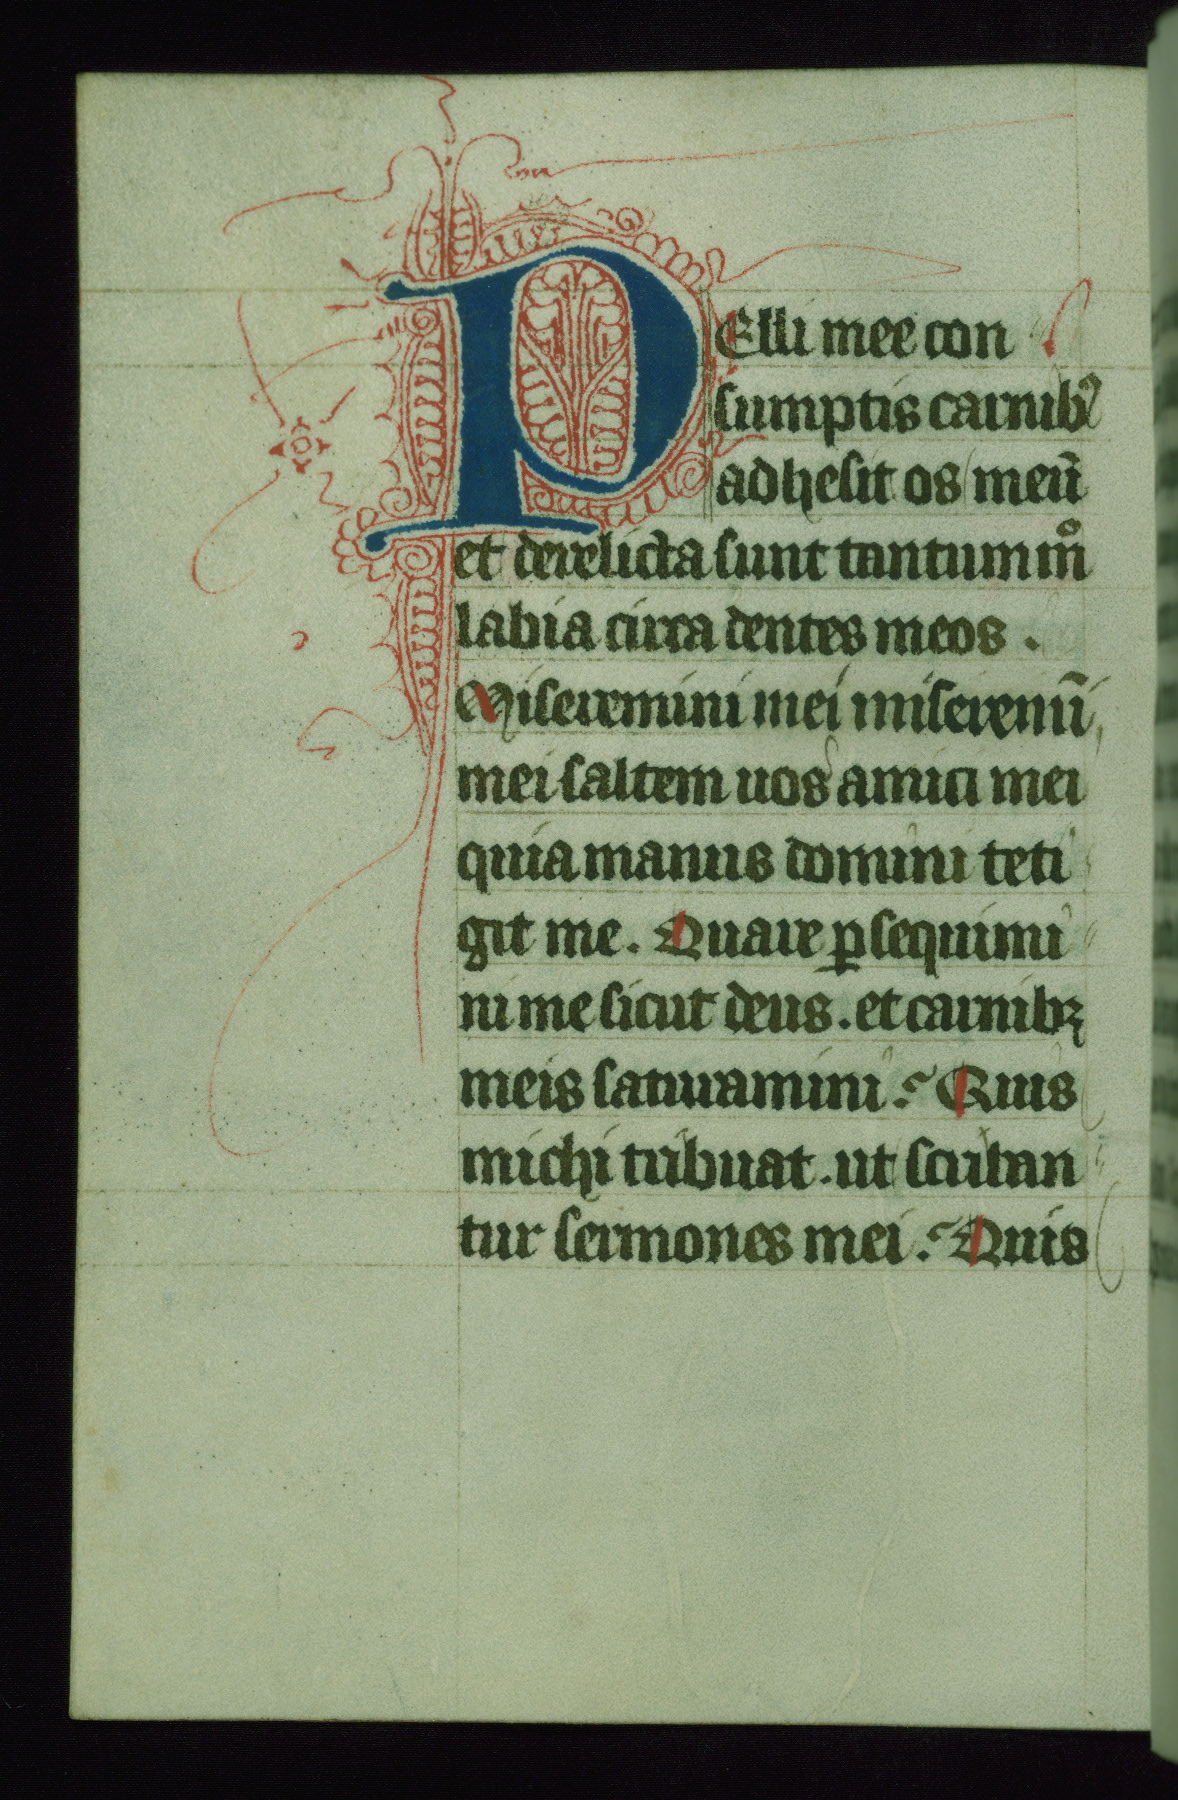 PElli mee con
sumptis carnibꝰ
adhesit os meū
et derelicta sunt tantum mͦ
labia circa dentes meos .
Miseremini mei miseremī
mei saltem uos amici mei
quia manus domini teti
git me. Quare ꝑsequimi
ni me sicut deus . et carnibꝫ
meis saturamini ? Quis
michi tribuat . ut scriban
tur sermones mei ? Quis